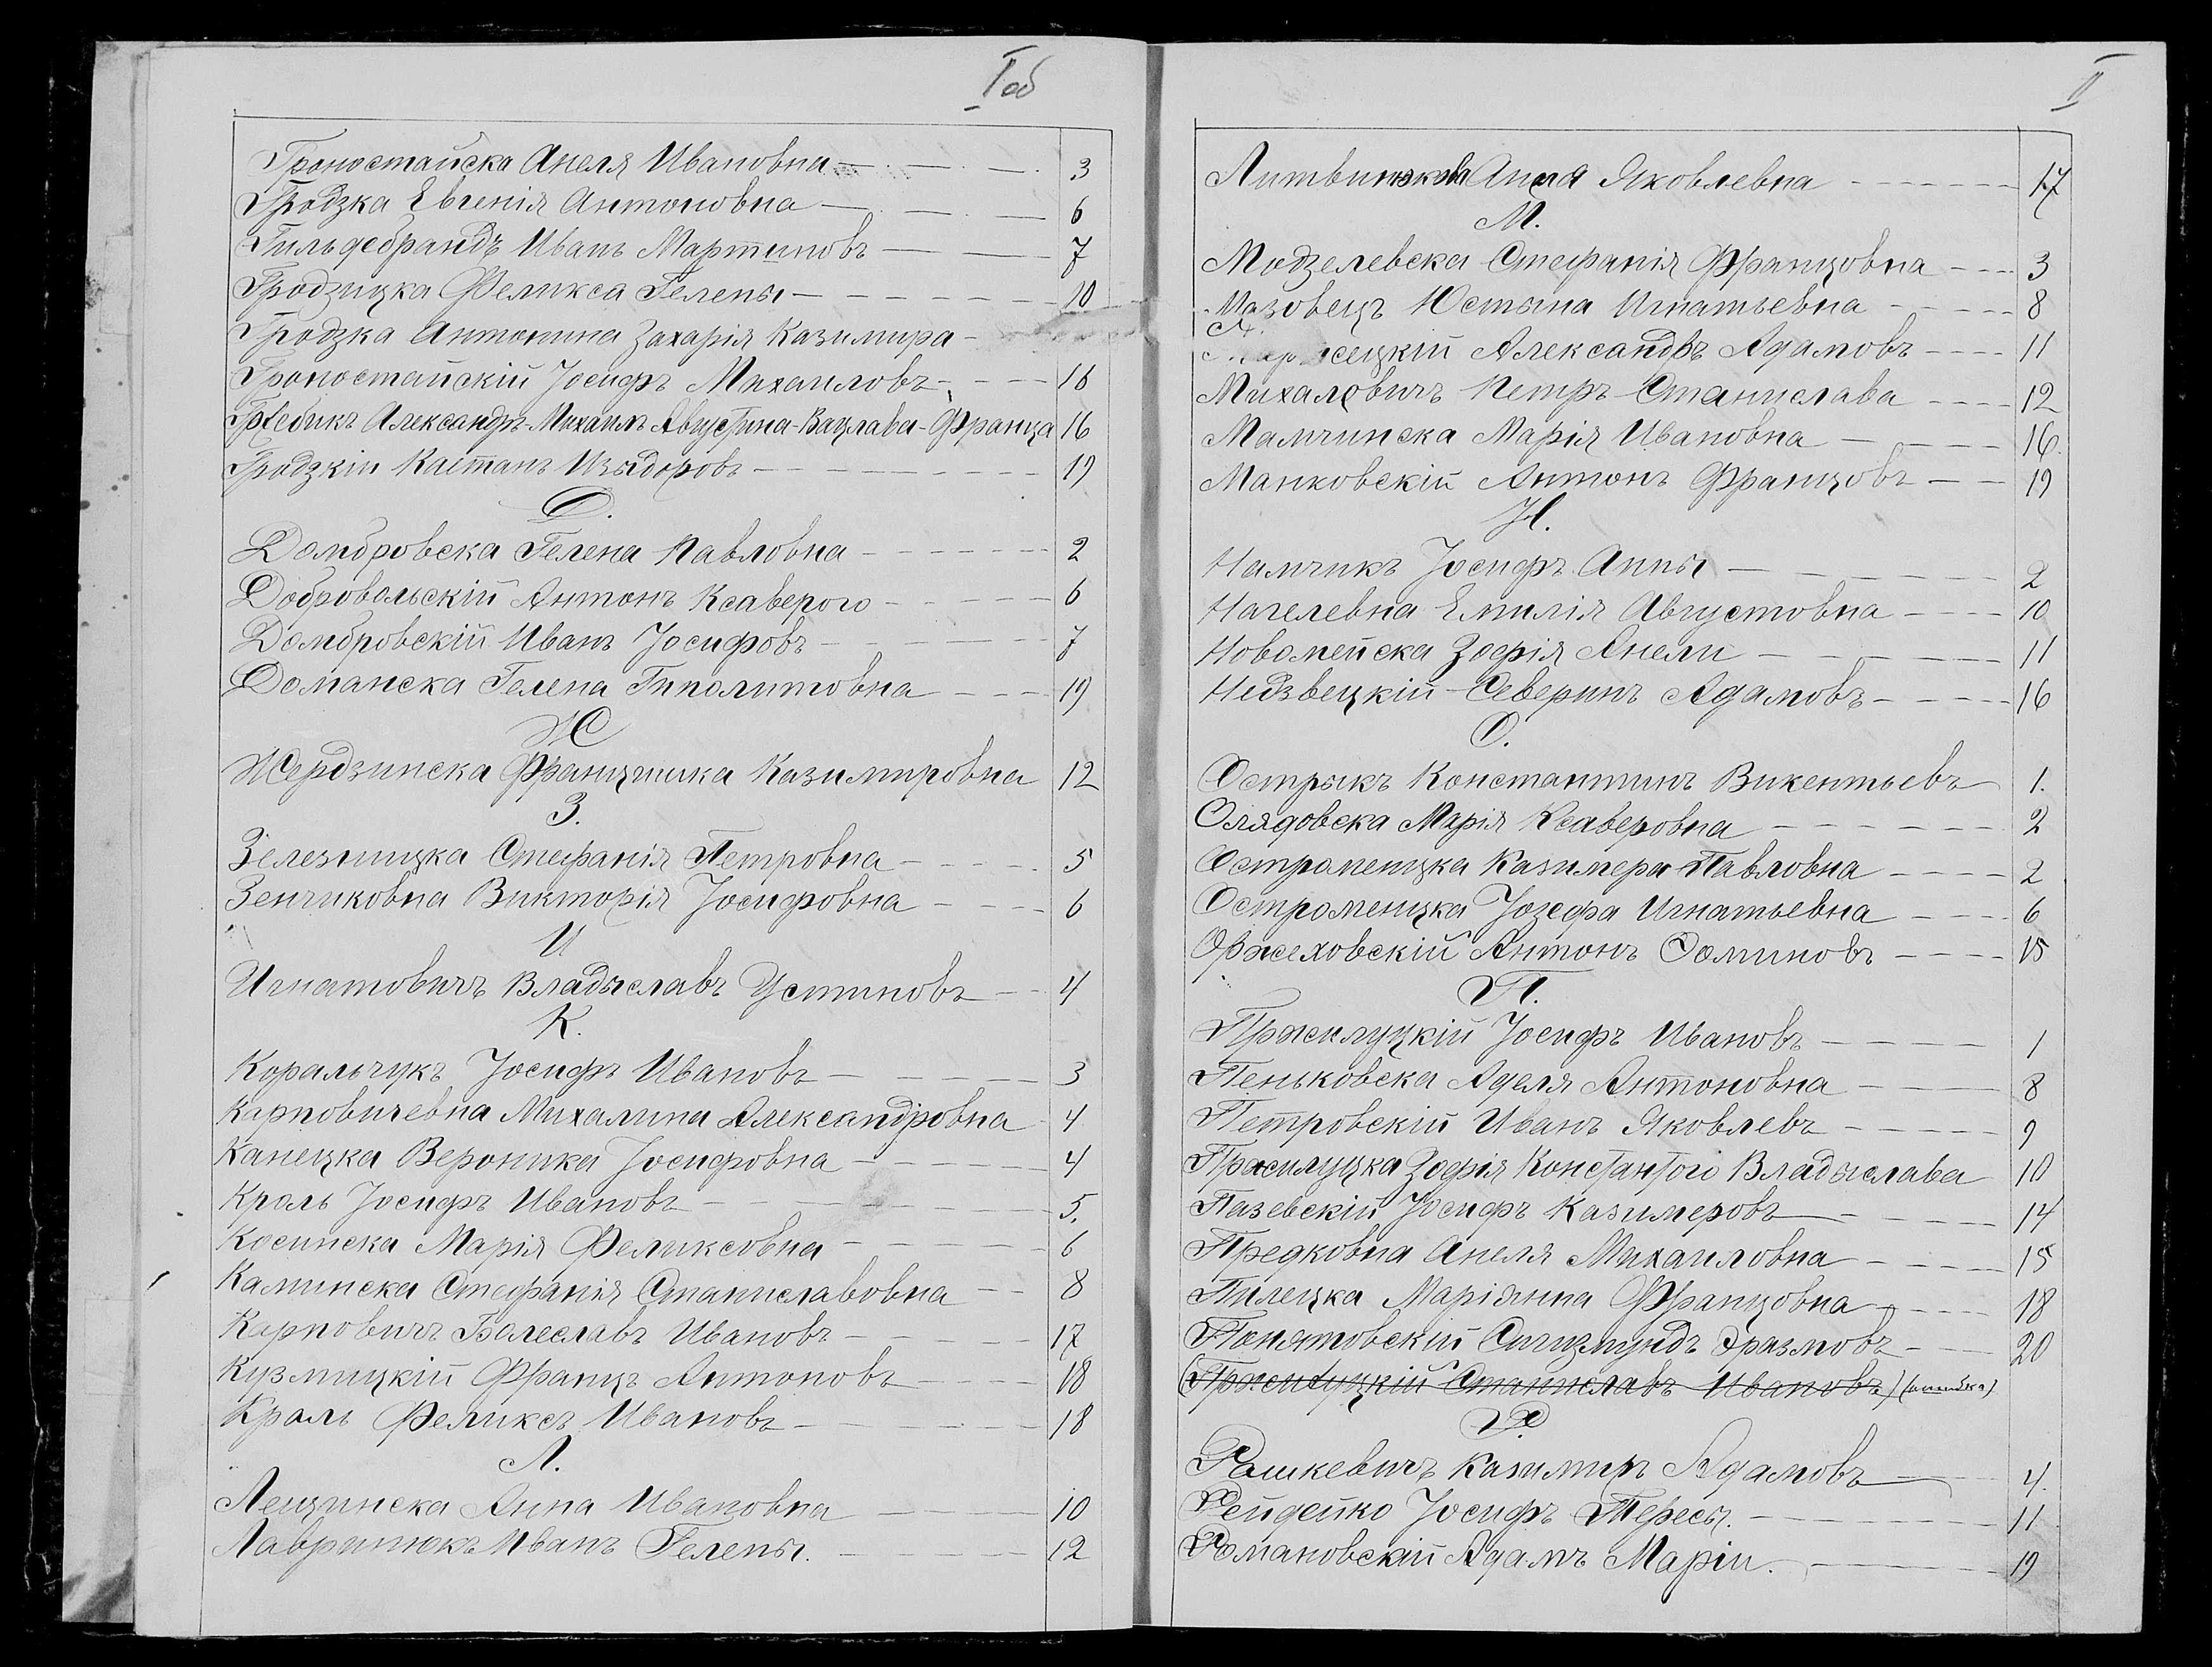 I об
Гроностайска Анеля Ивановна 3
Гродзка Евгенія Антоновна 6
Гильдебрандъ Иванъ Мартиновъ 7
Гродзицка Феликса Гелены 10
Гродзка Антонина Захарія Казимира
Гроностайскій Іосифъ Михаиловъ 16
Александръ-Михаилъ Августина-Вацлава-Франца 16
Гродзкій Каетанъ Изыдоровъ 19
Д.
Домбровска Гелена Павловна 2
Добровольскій Антонъ Ксаверого 6
Домбровскій Иванъ Іосифовъ 7
Доманска Гелена Гиполитовна 19
Ж
Жердзинска Францишка Казимировна 12
З.
Зелезницка Стефанія Петровна 5
Зенчиковна Викторія Іосифовна 6
И
Игнатовичъ Владыславъ Устиновъ 4
К.
Коральчукъ Іосифъ Ивановъ 3
Карповичевна Михалина Александровна 4
Канецка Вероника Іосифовна 4
Кроль Іосифъ Ивановъ 5.
Косинска Марія Феликсовна 6
Каминска Стефанія Станиславовна 8
Карповичъ Болеславъ Ивановъ 17
Кузмицкій Францъ Антоновъ 18
Кроль Феликсъ Ивановъ 18
Л.
Лещинска Анна Ивановна 10
Лавринюкъ Иванъ Гелены. 12
II
Анеля Яковлевна 17
М.
Модзелевска Стефанія Францовна 3
Мазовецъ Юстына Игнатьевна 8
Александръ Адамовъ 11
Михаловичъ Петръ Станислава 12
Мамчинска Марія Ивановна 16.
Манковскій Антонъ Францовъ 19
Н.
Намчикъ Іосифъ Анны 2
Нагелевна Емилія Августовна 10
Новомейска Зофія Анели 11
Недзвецкій Северинъ Адамовъ 16
О.
Острыкъ Константинъ Викентьевъ 1.
Олядовска Марія Ксаверовна 2
Остроменцка Казимера Павловна 2
Остроменцка Іозефа Игнатьевна 6
Оржеховскій Антонъ Доминовъ 15
П.
Пржилуцкій Іосифъ Ивановъ 1
Пеньковска Аделя Антоновна 8
Петровскій Иванъ Яковлевъ 9
Пржилуцка Зофія Константого Владыслава 10
Пазевскій Іосифъ Казимеровъ 14
Предковна Анеля Михаиловна 15
Пилецка Маріянна Францовна 18
Понятовскій Сигизмундъ Эразмовъ 20
(Пржилуцкій Станиславъ Ивановъ) (ошибка)
Р.
Рошкевичъ Казимиръ Адамовъ 4.
Рейдейко Іосифъ Тересы. 11
Романовскій Адамъ Маріи. 19